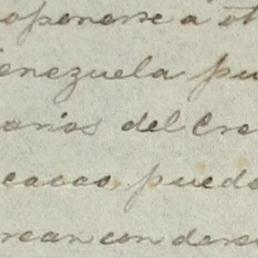 oponerse a ot
enezuela pu
arios del Cre
cacao, puedo
crean con dere